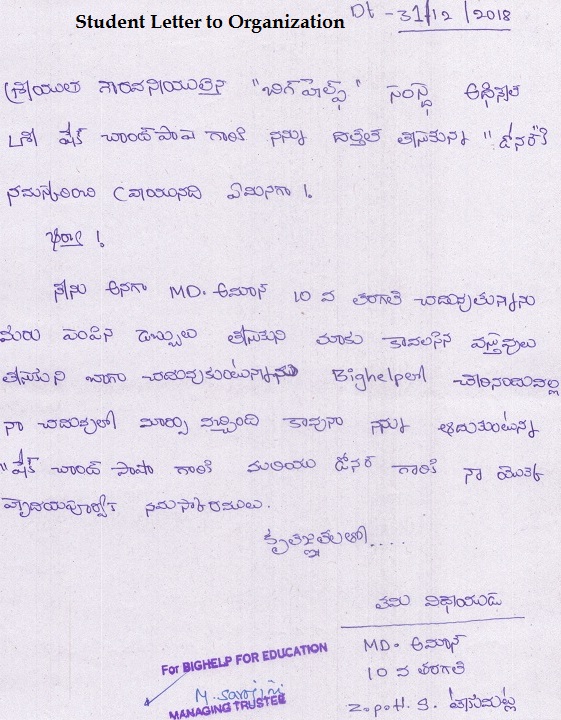 Student Letter to Organization
Dt - 31/12/2018
శ్రీయుత గౌరవనీయులైన "బిగ్ హెల్ప్" సంస్థ అధినేత
శ్రీ షేక్ చాంద్ పాషా గారికి నన్ను దత్తత తీసుకున్న "డోనర్"కి
నమస్కరించి వ్రాయునది ఏమనగా !.
ఆర్యా !
నేను అనగా MD. అమాన్ 10 వ తరగతి చదువుతున్నాను
మీరు పంపిన డబ్బులు తీసుకుని మాకు కావలసిన వస్తువులు
తీసుకుని బాగా చదువుకుంటున్నాము Bighelpలో చేరినందువల్ల
నా చదువులో మార్పు వచ్చింది కావునా నన్ను ఆదుకుంటున్న
"షేక్ చాంద్ పాషా గారికి మరియు డోనర్ గారికి నా యొక్క
హృదయపూర్వక నమస్కారములు.
కృతజ్ఞతలతో....
తమ విధేయుడు
MD. అమాన్
10 వ తరగతి
For BIGHELP FOR EDUCATION
M. Sarojini
MANAGING TRUSTEE